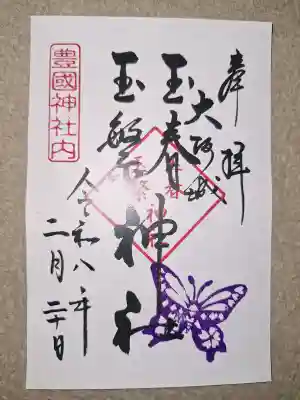 奉拝
大阪城
玉春
玉繁神社
令和八年
二月二十日
豊國神社内